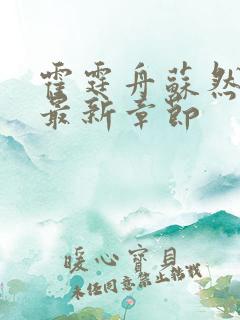 霍霆舟蘇然
最新章節
暖心寶貝
未経同意禁止轉載